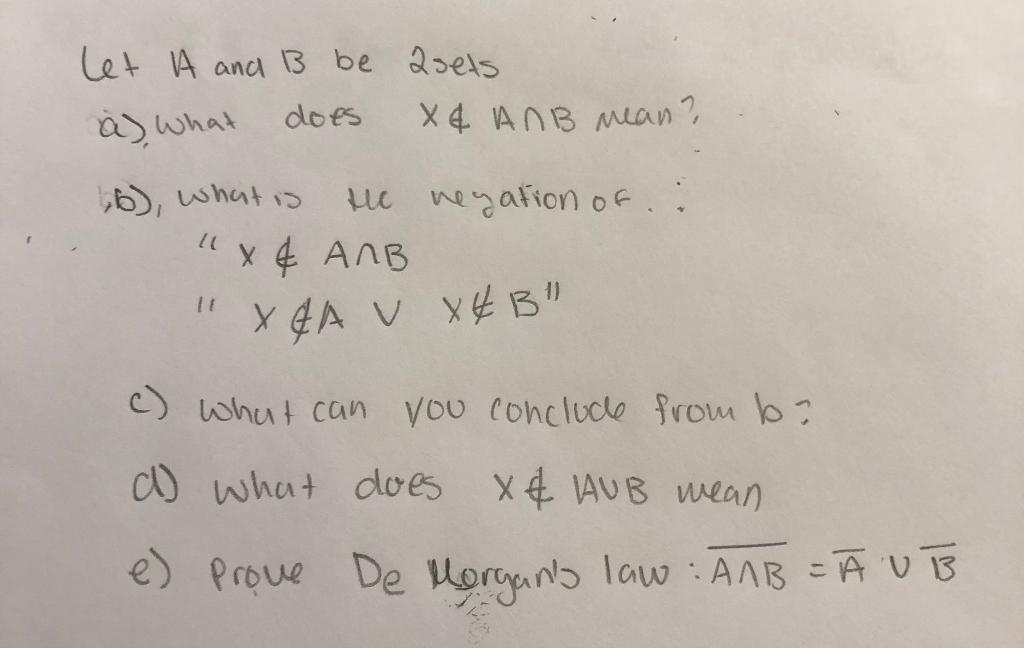 Let A and B be 2 sets
a), what does X ∉ A∩B mean?
b), what is the negation of :
" X ∉ A∩B
" X ∉ A ∨ X ∉ B"
c) what can you conclude from b?
d) what does X ∉ A∪B mean
e) Prove De Morgan's law : \overline{A∩B} = \overline{A} ∪ \overline{B}